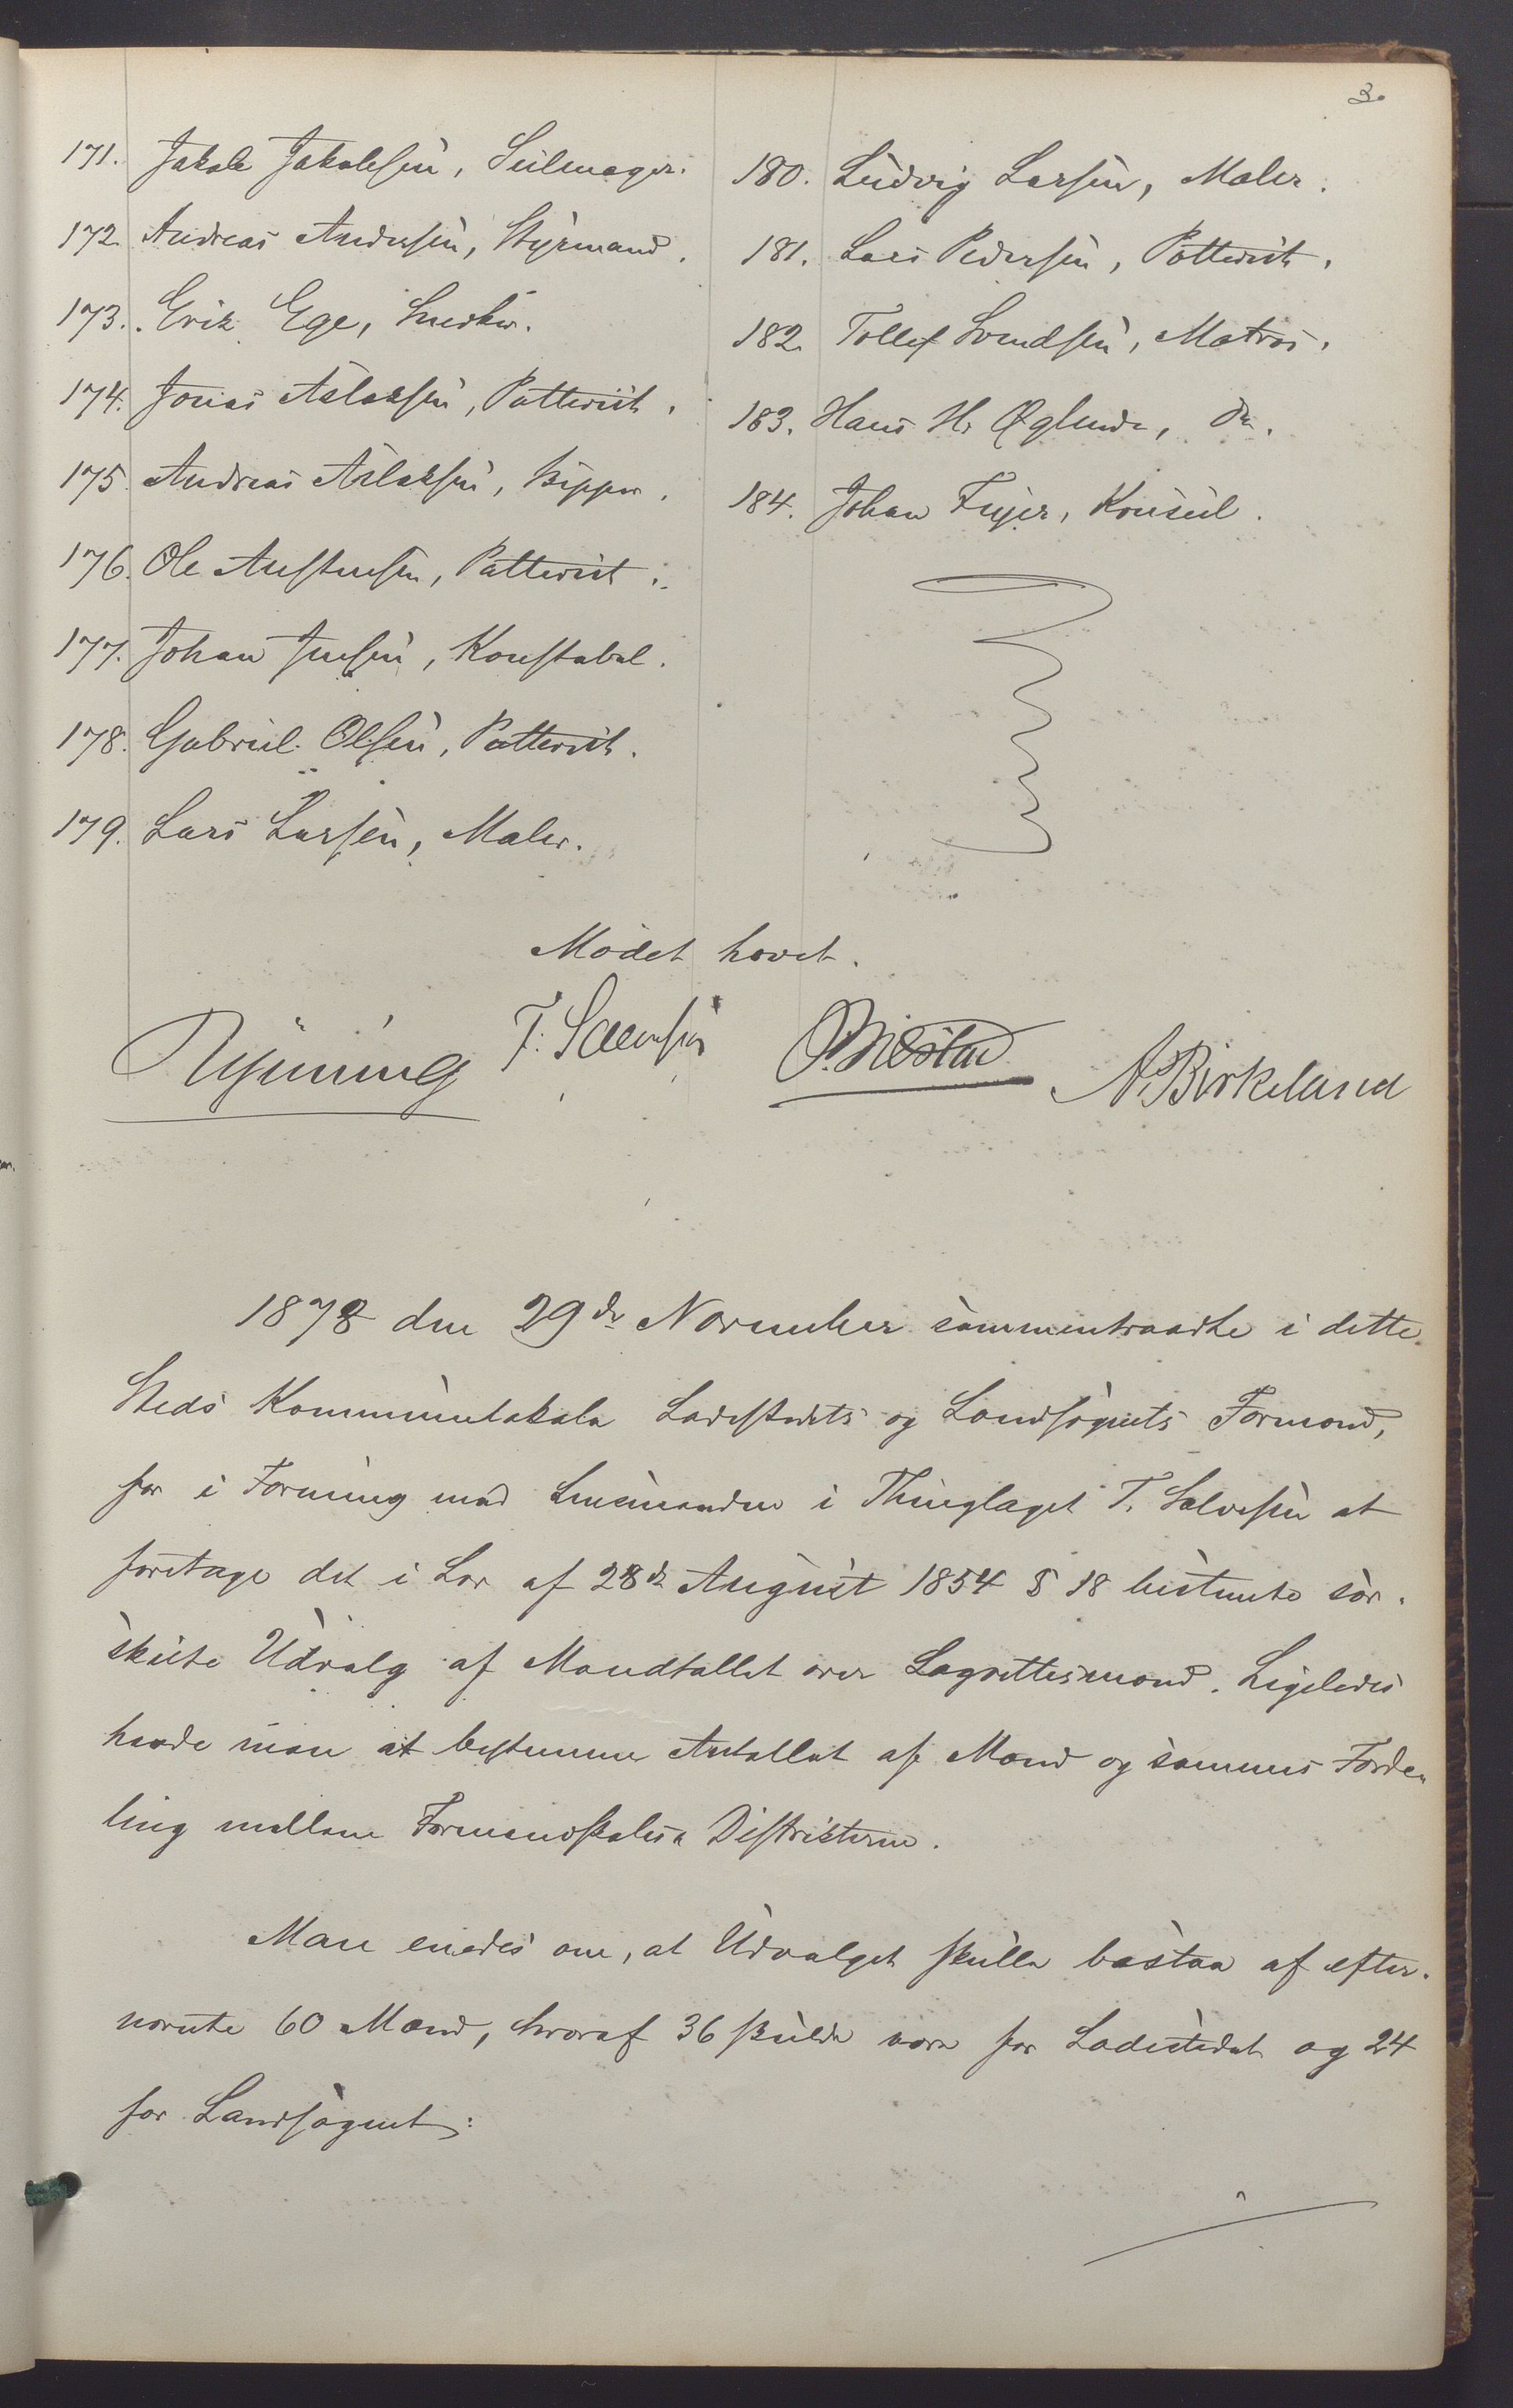 3.
171. Jakob Jakobsen, Seilmager.
172. Andreas Andersen, Styrmand.
173. Erik Ege, Snedker.
174. Jonas Aslaksen, Pottevirk.
175. Andreas Aslaksen, Skipper.
176. Ole Austensen, Pottevirk.
177. Johan Jensen, Konstabel.
178. Gabriel Olsen, Pottevirk.
179. Lars Larsen, Maler.
180. Ludvig Larsen, Maler.
181. Lars Pedersen, Pottevirk.
182. Tollef Svendsen, Matros.
183. Hans H. Øglænd, do.
184. Johan Feyer, Konsul.
Mødet hævet.
T. Salvesen
A. Birkeland
1878 den 29de November sammentraadte i dette
Steds Kommunelokale Ladestedets og Landsognets Formænd,
for i Forening med Lensmanden i Thinglaget T. Salvesen at
foretage det i Lov af 28de August 1854 § 18 bestemte sær-
skilte Udvalg af Mandtallet over Lagrettesmænd. Ligeledes
havde man at bestemme Antallet af Mænd og sammes Forde-
ling mellem Formandskabs Distrikterne.
Man enedes om, at Udvalget skulle bestaa af efter-
nævnte 60 Mænd, hvoraf 36 skulde være for Ladestedet og 24
for Landsognet: